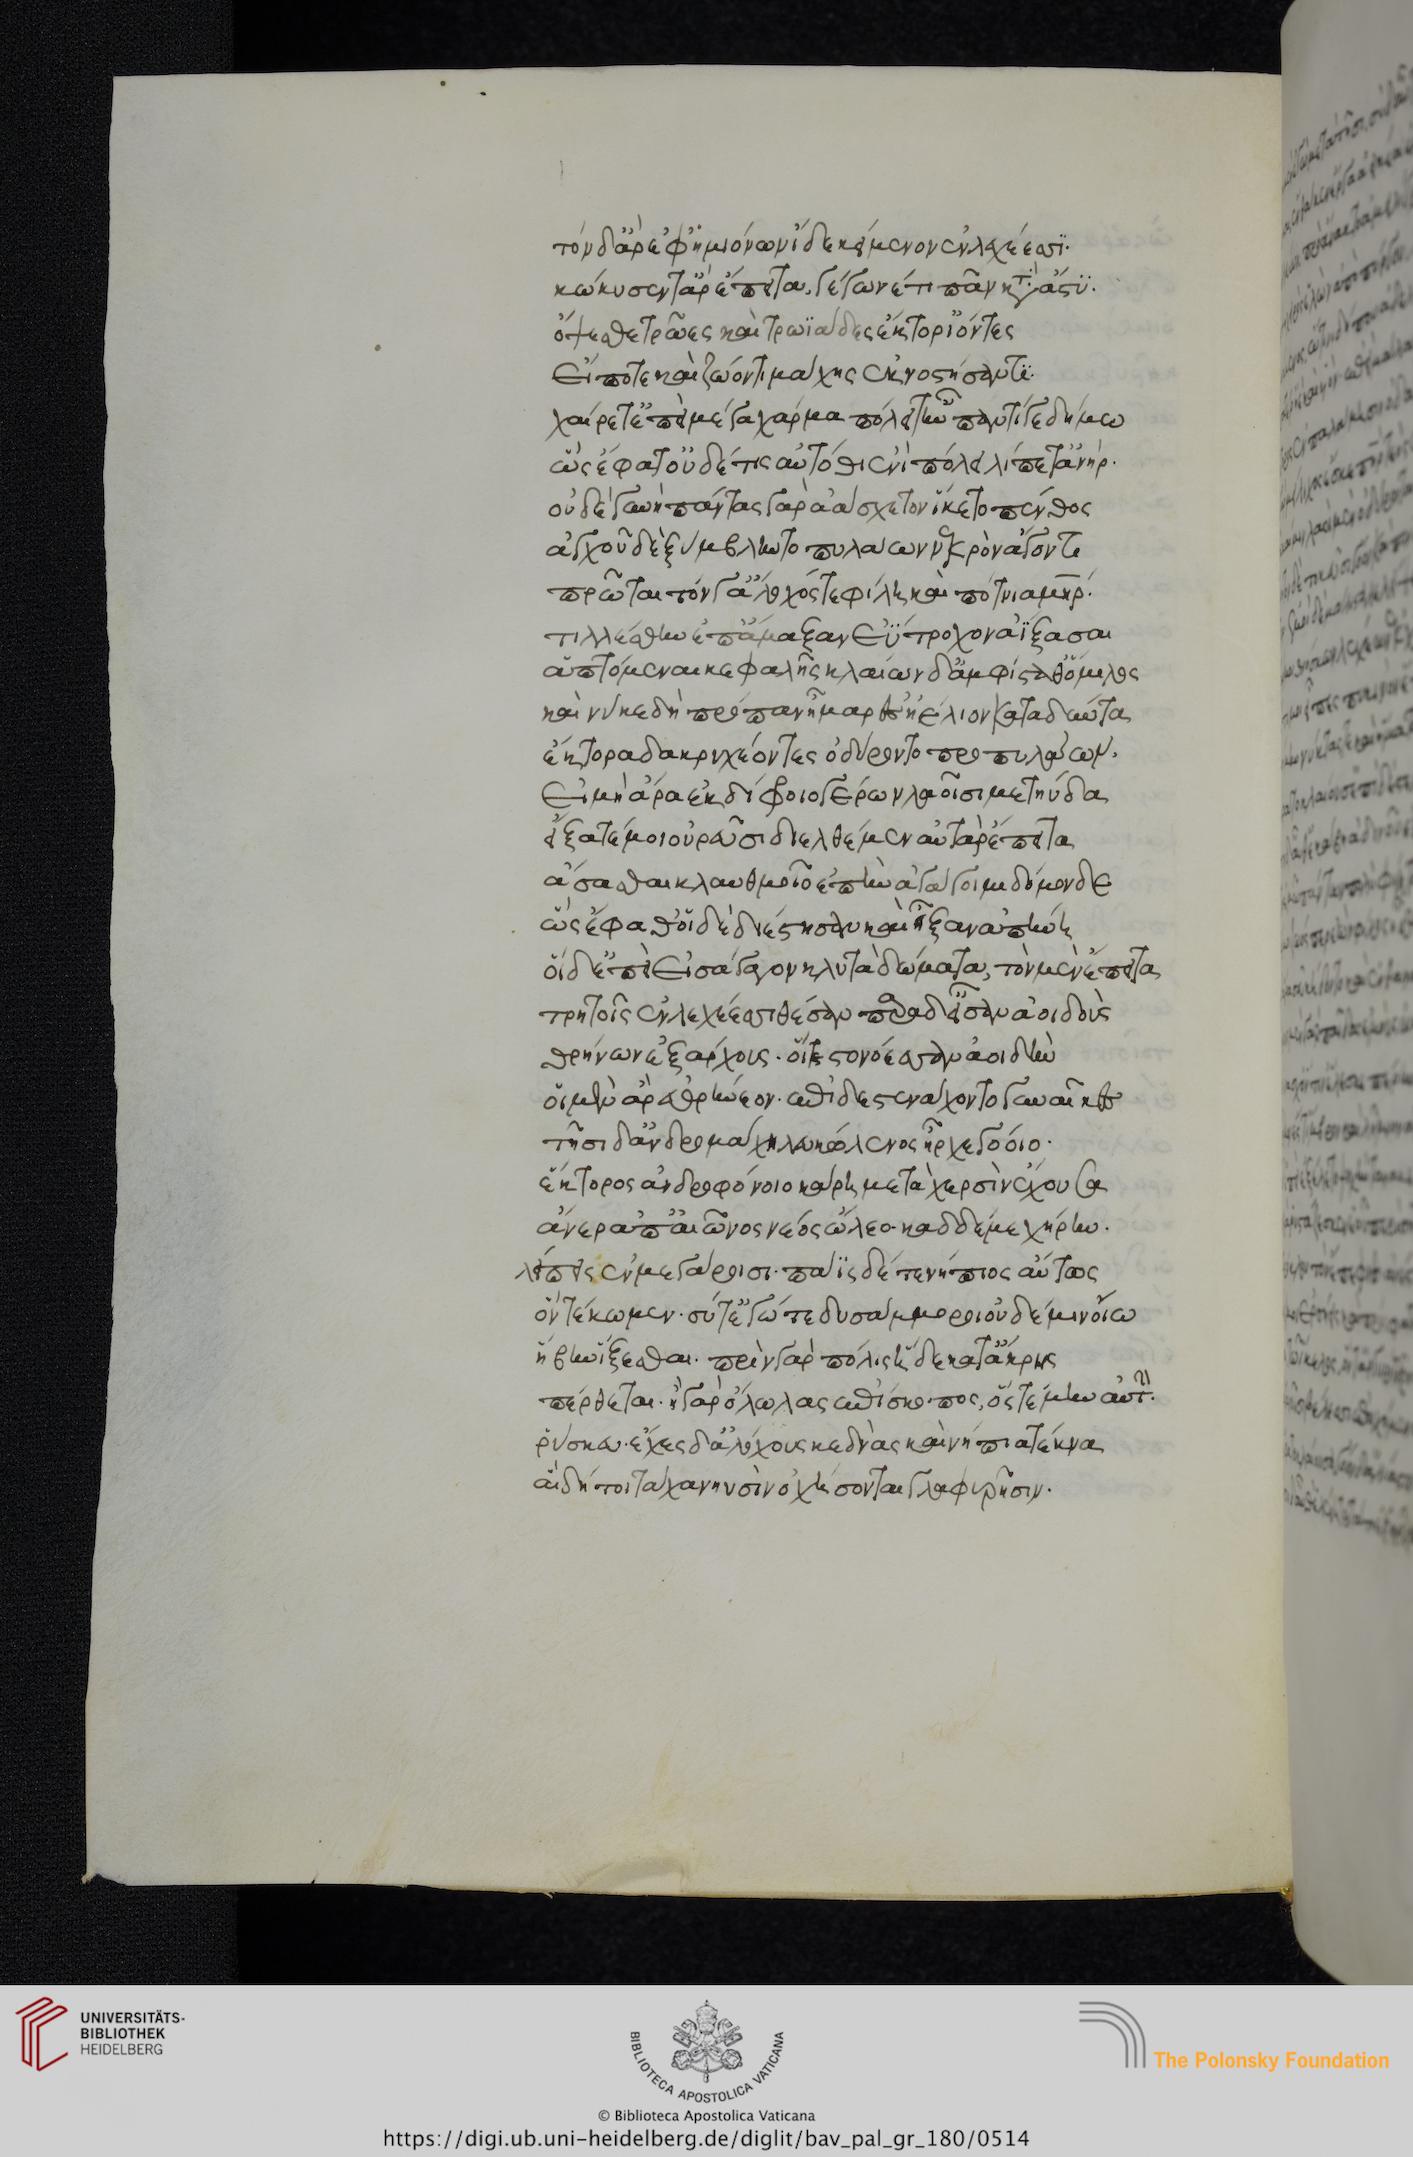 τόν δ' ἄρ' ἐφ' ἡμιόνων ἴδε κείμενον ἐν λεχέεσσϊ·
κώκυσέν τ' ἄρ' ἔπειτα, γέγωνέ τι πᾶν κατὰ ἄστϋ·
ὄψεσθε τρῶες καὶ τρωϊάδες ἕκτορ' ἰόντες
Εἴ ποτε καὶ ζώοντι μάχης ἐκ νοστήσαντϊ·
χαίρετ' ἐπεὶ μέγα χάρμα πόλει τ' ἦν παντί τε δήμω
ὣς ἔφατ' οὐδέ τις αὐτόθι ἐνὶ πόλει λίπετ' ἀνήρ·
οὐδὲ γυνὴ πάντας γὰρ ἀάσχετον ἵκετο πένθος
ἀγχοῦ δὲ ξύμβληντο πυλάων νεκρὸν ἄγοντι
πρῶται τόν γ' ἄλοχός τε φίλη καὶ πότνια μηρ·
τιλλέσθην ἐπ' ἄμαξαν Εΰτροχον ἀΐξασαι
ἁπτόμεναι κεφαλῆς κλαίων δ' ἀμφίσταθ' ὅμιλος
καὶ νύ κε δὴ πρόπαν ἦμαρ ἐς ἠέλιον καταδύντα
ἕκτορα δακρυχέοντες ὀδύροντο προ πυλάων·
Εἰ μὴ ἄρα ἐκ δίφροιο γέρων λαοῖσι μετηύδα
εἴξατέ μοι οὐρεῦσι διελθέμεν αὐτὰρ ἔπειτα
ἄσασθαι κλαυθμοῖο ἐπὴν ἀγάγοιμι δόμονδε
ὣς ἔφαθ' οἱ δὲ διέστησαν καὶ εἶξαν ἀπήνη
οἱ δ' ἐπεὶ Εἰσάγαγον κλυτὰ δώματα, τὸν μὲν ἔπειτα
τρητοῖς ἐν λεχέεσσι θέσαν παρα δ' εἷσαν ἀοιδοὺς
θρήνων ἐξάρχους· οἵτε στονόεσσαν ἀοιδὴν
οἱ μὲν ἂρ ἐθρήνεον· ἐπὶ δὲ στενάχοντο γυναῖκες
τῆσι δ' ἀνδρομάχη λευκώλενος ἦρχε γόοιο·
ἕκτορος ἀνδροφόνοιο κάρη μετὰ χερσὶν ἔχουσα
ἄνερ ἀπ' αἰῶνος νέος ὤλεο· καδ δέ με χήρην·
λείπεις ἐν μεγάροισι· πάϊς δέ τε νήπιος αὔτως
ὃν τέκωμεν· σύ τ' ἐγώ τε δυσάμμοροι οὐδέ μιν οἴω
ἥβην ἵξεσθαι· πρὶν γὰρ πόλις ἥδε κατ' ἄκρης
πέρθεται· ἦ γὰρ ὄλωλας ἐπίσκοπος, ὅς τέ μην αὐτὴν·
ῥύσκευ· ἔχες δ' ἀλόχους κεδνὰς καὶ νήπια τέκνα
αἳ δή τοι τάχα νηυσὶν ὀχήσονται γλαφυρῆσιν·
UNIVERSITÄTS-
BIBLIOTHEK
HEIDELBERG
BIBLIOTECA APOSTOLICA VATICANA
The Polonsky Foundation
© Biblioteca Apostolica Vaticana
https://digi.ub.uni-heidelberg.de/diglit/bav_pal_gr_180/0514